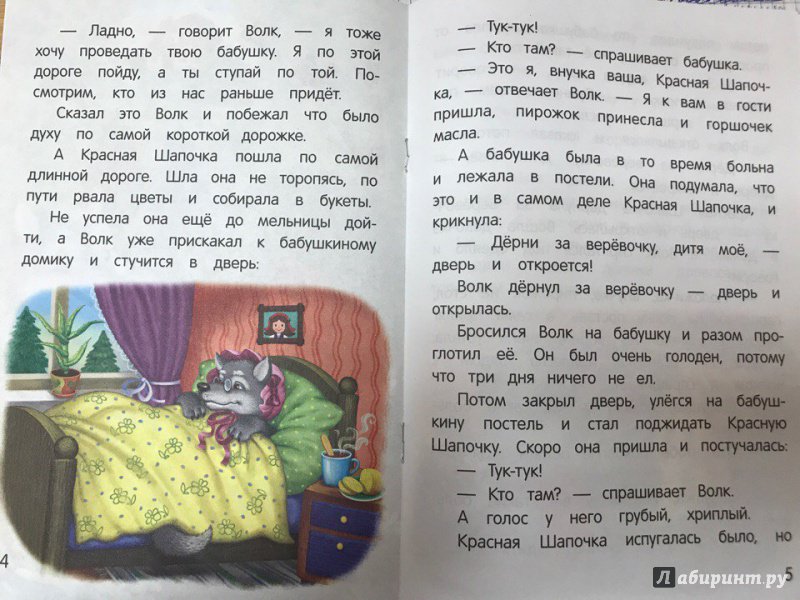 — Ладно, — говорит Волк, — я тоже
хочу проведать твою бабушку. Я по этой
дороге пойду, а ты ступай по той. По-
смотрим, кто из нас раньше придёт.
Сказал это Волк и побежал что было
духу по самой короткой дорожке.
А Красная Шапочка пошла по самой
длинной дороге. Шла она не торопясь, по
пути рвала цветы и собирала в букеты.
Не успела она ещё до мельницы дой-
ти, а Волк уже прискакал к бабушкиному
домику и стучится в дверь:
4
— Тук-тук!
— Кто там? — спрашивает бабушка.
— Это я, внучка ваша, Красная Шапоч-
ка, — отвечает Волк. — Я к вам в гости
пришла, пирожок принесла и горшочек
масла.
А бабушка была в то время больна
и лежала в постели. Она подумала, что
это и в самом деле Красная Шапочка, и
крикнула:
— Дёрни за верёвочку, дитя моё, —
дверь и откроется!
Волк дёрнул за верёвочку — дверь и
открылась.
Бросился Волк на бабушку и разом про-
глотил её. Он был очень голоден, потому
что три дня ничего не ел.
Потом закрыл дверь, улёгся на бабуш-
кину постель и стал поджидать Красную
Шапочку. Скоро она пришла и постучалась:
— Тук-тук!
— Кто там? — спрашивает Волк.
А голос у него грубый, хриплый.
Красная Шапочка испугалась было, но
5
Лабиринт.ру